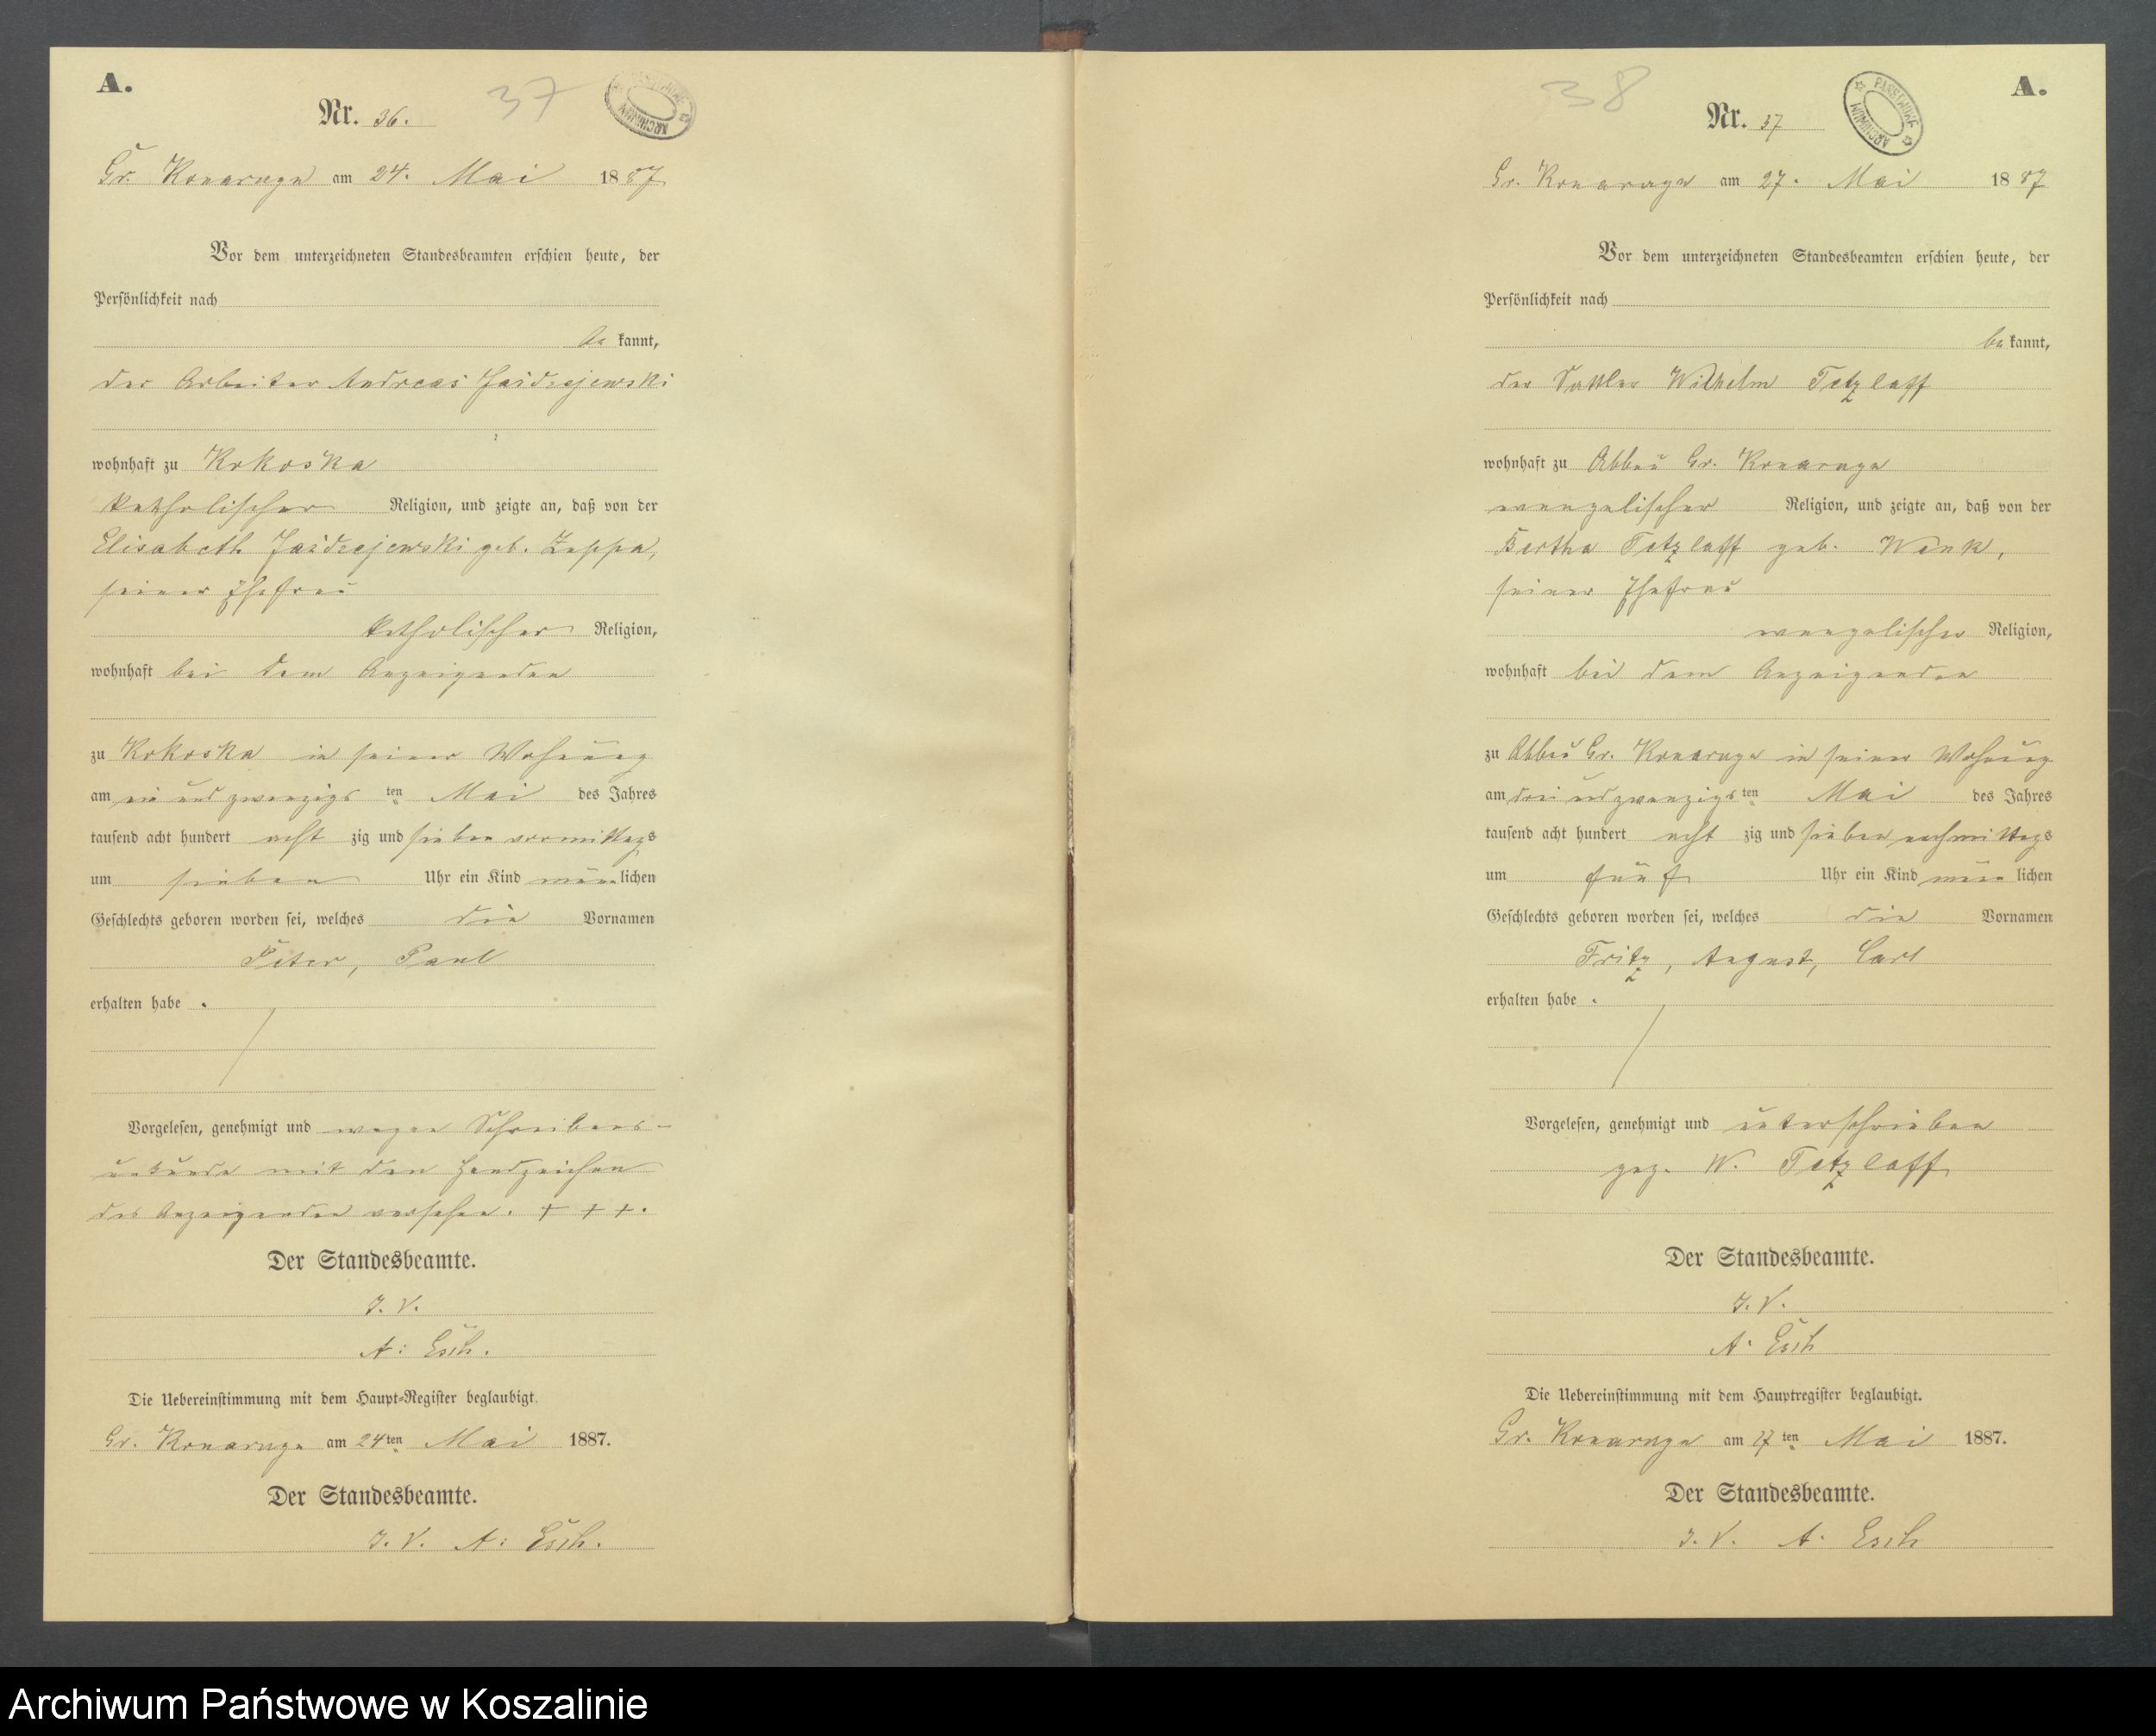 A.
Nr. 36.
37
Gr. Konarczyn am 24. Mai 1887
Vor dem unterzeichneten Standesbeamten erschien heute, der
Persönlichkeit nach
be kannt,
der Arbeiter Andreas
wohnhaft zu Kokoska
katholischer Religion, und zeigte an, daß von der
Elisabeth geb.
seiner Ehefrau
katholischer Religion,
wohnhaft bei dem Anzeigenden
zu Kokoska in seiner Wohnung
am ein und zwanzigs ten Mai des Jahres
tausend acht hundert acht zig und sieben vormittags
um sieben Uhr ein Kind männlichen
Geschlechts geboren worden sei, welches die Vornamen
Peter, Paul
erhalten habe.
Vorgelesen, genehmigt und wegen Schreibens-
unkunde mit den Handzeichen
des Anzeigenden versehen. + + +.
Der Standesbeamte.
J. V.
A: Esch.
Die Uebereinstimmung mit dem Haupt-Register beglaubigt.
Gr. am 24ten Mai 1887.
Der Standesbeamte.
J. V. A: Esch.
A.
Nr. 37
38
PAŃSTWOWE ARCHIWUM
Gr. am 27. Mai 1887
Vor dem unterzeichneten Standesbeamten erschien heute, der
Persönlichkeit nach
be kannt,
der Sattler Wilhelm Tetzlaff
wohnhaft zu Abbau Gr.
evangelischer Religion, und zeigte an, daß von der
Bertha Tetzlaff geb. Wenk,
seiner Ehefrau
evangelischer Religion,
wohnhaft bei dem Anzeigenden
zu Abbau Gr. in seiner Wohnung
am drei und zwanzigs ten Mai des Jahres
tausend acht hundert acht zig und sieben nachmittags
um fünf Uhr ein Kind männlichen
Geschlechts geboren worden sei, welches die Vornamen
Fritz, August, Carl
erhalten habe.
Vorgelesen, genehmigt und unterschrieben
gez. W. Tetzlaff
Der Standesbeamte.
J. V.
A. Esch
Die Uebereinstimmung mit dem Hauptregister beglaubigt.
Gr. am 27 ten Mai 1887.
Der Standesbeamte.
J. V. A. Esch
Archiwum Państwowe w Koszalinie